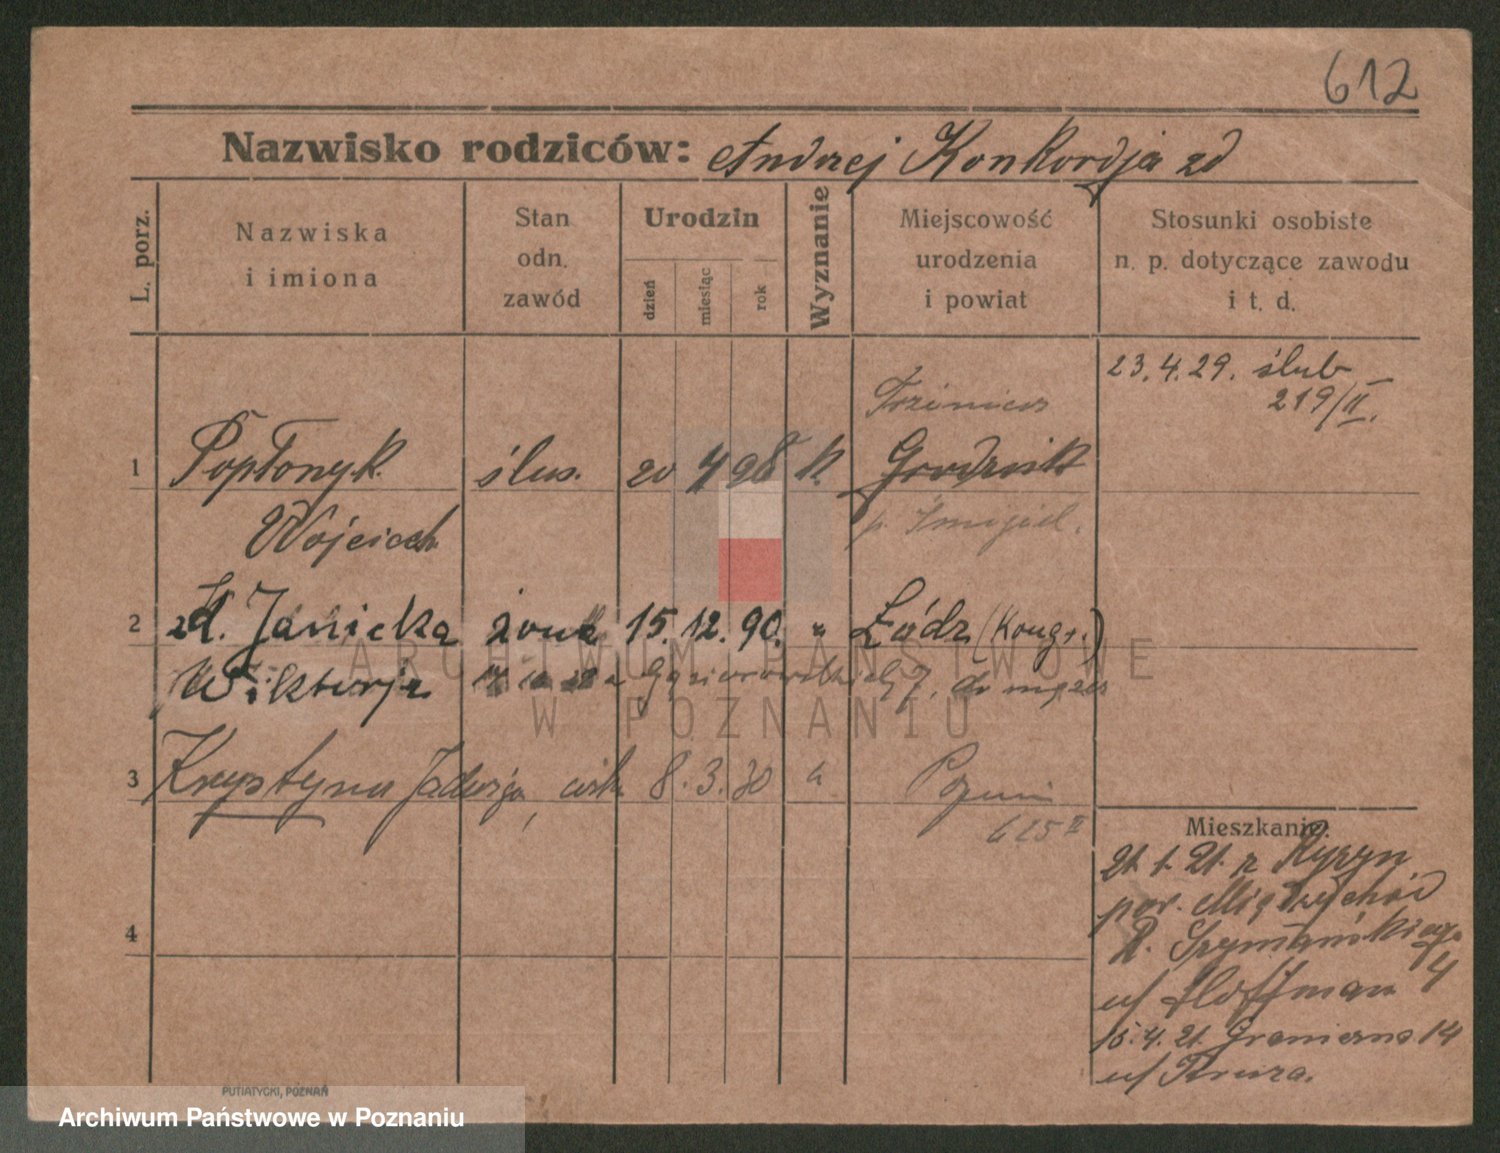 612
Nazwisko rodziców: Andrzej Konkordja zd
L. porz.
Nazwiska
i imiona
Stan
odn.
zawód
Urodzin
dzień
miesiąc
rok
Wyznanie
Miejscowość
urodzenia
i powiat
Stosunki osobiste
n. p. dotyczące zawodu
i t. d.
23.4.29. ślub
219/II.
1 Popłonyk ślus. 20 4 98 k. Grodzisk
Wojciech p. Śmigiel.
2 zd. Janicka żona 15. 12. 90. " Łódź (Kongr.)
Wiktorja do męża
3 Krystyna Jadwiga, córk 8. 3. 30 "
625 II
4
Mieszkanie:
21. 1. 21. z Ryżyn
pow. Międzychód
R. Szymańskiego
4
u/ Hoffman
15. 4. 21. Graniczna 14
u/
PUTIATYCKI, POZNAŃ
ARCHIWUM PAŃSTWOWE
W POZNANIU
Archiwum Państwowe w Poznaniu